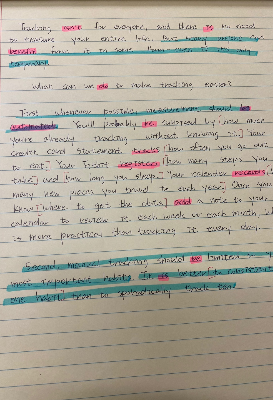 Tracking isn't for everyone, and there is no need
to measure your entire life. But nearly anyone can
benefit from it in some form even if it's only
temporary.
What can we do to make tracking easier?
First, whenever possible, measurement should be
automated. You'll probably be surprised by how much
you're already tracking without knowing it. Your
credit card statement tracks how often you go out
to eat. Your Fitbit registers how many steps you
take and how long you sleep. Your calendar records how
many new places you travel to each year. Once you
know where to get the data, add a note to your
calendar to review it each week or each month,
is more practical than tracking it every day.
Second, manual tracking should be limited to your
most important habits. It is better to consistently track
one habit than to sporadically track ten.